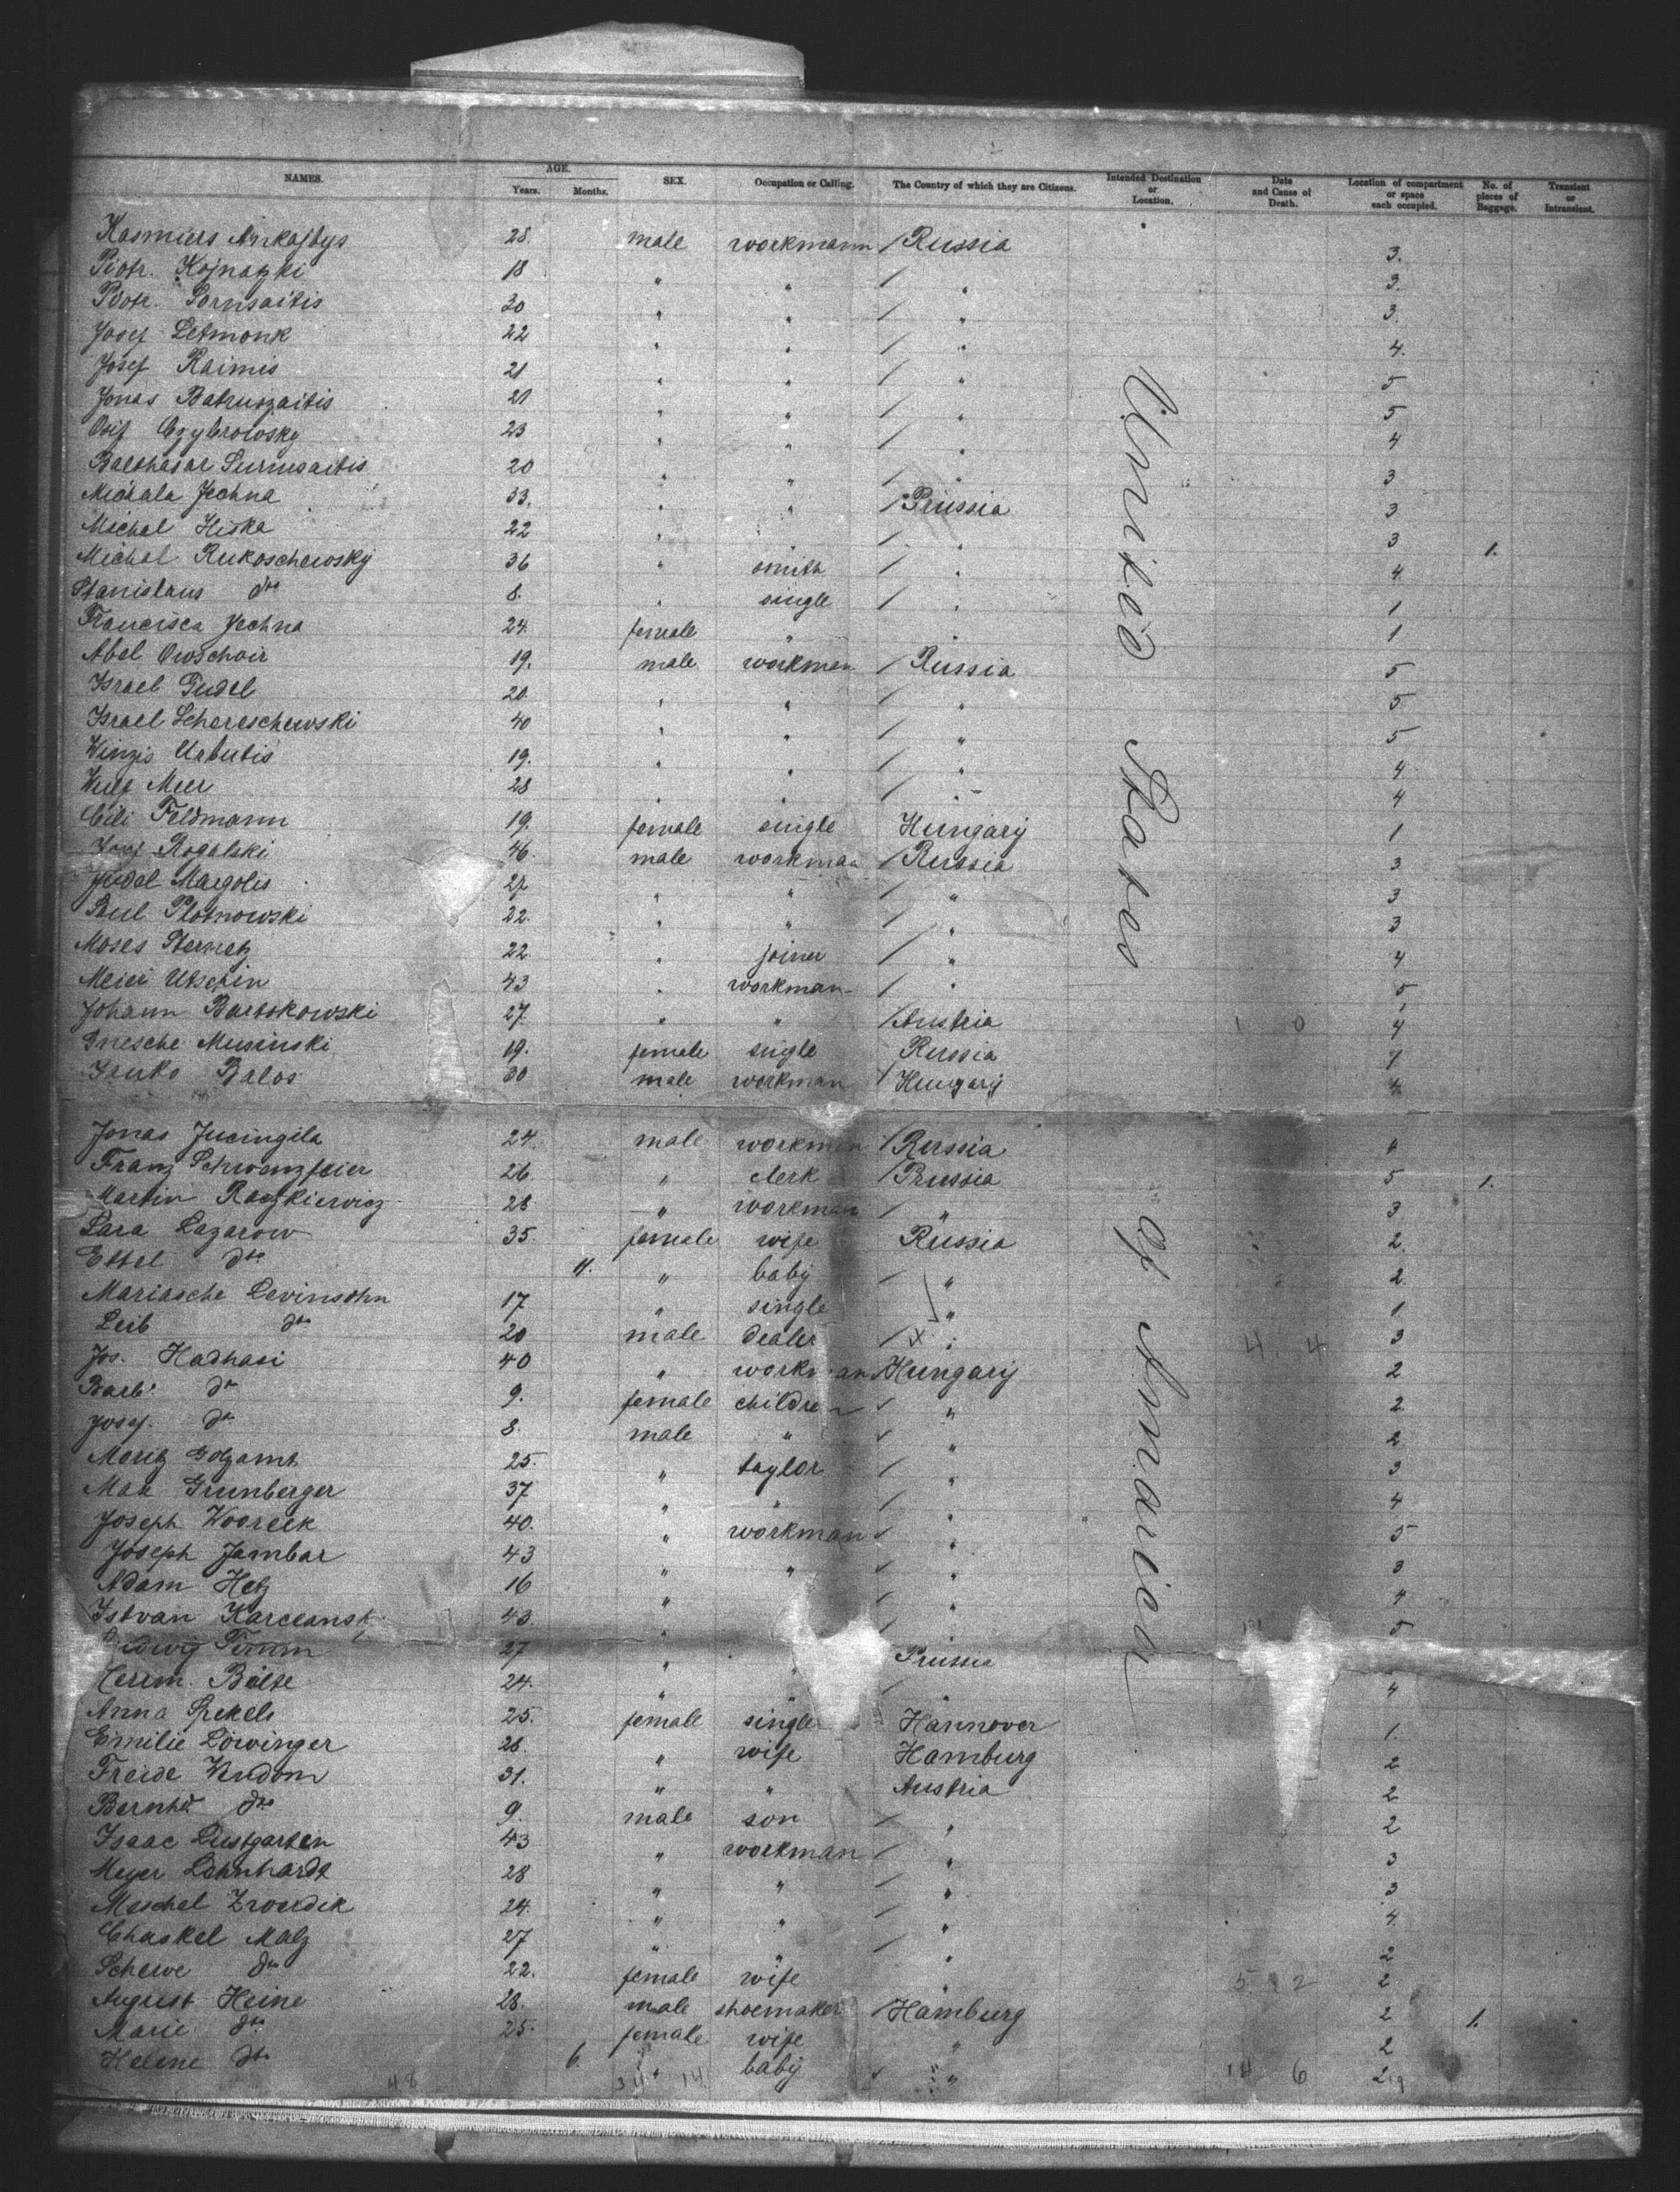 NAMES. AGE. Years. Months. SEX. Occupation or Calling. The Country of which they are Citizens. Intended Destination or Location. Date and Cause of Death. Location of compartment or space each occupied. No. of pieces of Baggage. Transient or Intransient.
Kasmiers 28. male workmann / Russia 3.
Piotr. 18 " " / " 3.
Piotr. 30 " " / " 3.
Josef Letmonk 22 " " / " 4.
Josef Raimis 21 " " / " 5
Jonas Batruszaitis 21 " " / " 5
Osif Czybrowsky 23 " " / " 4
Balthasar Surmsaitis 20 " " / " 3
Michala Jechna 33. " " / Prussia 3
Michal Hiska 22 " " / " 3 1.
Michal Rukoschewsky 36 " smith / " 4.
Stanislaus dto 8. " single / " 1
Francisca Jechna 24. female " " 1
Abel Owschoir 19. male workman / Russia 5
Israel Gudel 20. " " / " 5
Israel Schereschewski 40 " " / " 5
Winzis Urbutis 19. " " / " 4
Wulf Meer 28 " " / " 4
Cili Feldmann 19. female single Hungary 1
Josef Rogalski 46. male workman / Russia 3
Judel Margolis 27 " " / " 3
Plotnowski 22. " " / " 3
Moses 22. " joiner / " 4
Meier Utschin 43 " workman / " 5
Johann Bartokowski 27. " " / Austria 4
Gnesche Musinski 19. female single Russia 1
Janko Balos 30 male workman / Hungary 4.
Jonas Jucingila 24. male workman / Russia 4
Franz Schwanzfeier 26. " clerk / Prussia 5 1.
Martin Razkiewicz 28. " workman / " 3
Sara Lazarow 35. female wife Russia 2.
Ettel dto 11. " baby / " 2.
Mariasche Levinsohn 17 " single " 1.
Leib dto 20 male dealer / " 3
Jos. Hadhasi 40 " workman / Hungary 2
Barb. dto 9. female children " 2.
Josef. dto 8. male " " 2
Moritz 25. " taylor / " 3
Max Grunberger 37 " " / " 4
Joseph Wooreck 40. " workman " 5
Joseph Jambar 43 " " " 3
Adam Hetz 16 " / " 4
Istvan 43. " / " 5
Timm 27 " Prussia
Herm. Bolte 24. " " / " 4
Anna Spekels 25. female single Hannover 1.
Emilie Löwinger 26. " wife Hamburg 2
Freide Wudom 31. " " Austria 2
Bernhd dto 9. male son / " 2
Isaac Lustgarten 43 " workman / " 3
Meyer Lehnhardt 28 " " / " 3
Meschel 24. " " / " 4.
Chaskel Malz 27 " " / " 2
Schewe dto 22. female wife " 2
August Heine 28. male shoemaker / Hamburg 2 1.
Marie dto 25. female wife " 2
Helene dto 6. " baby " 2
United States of America